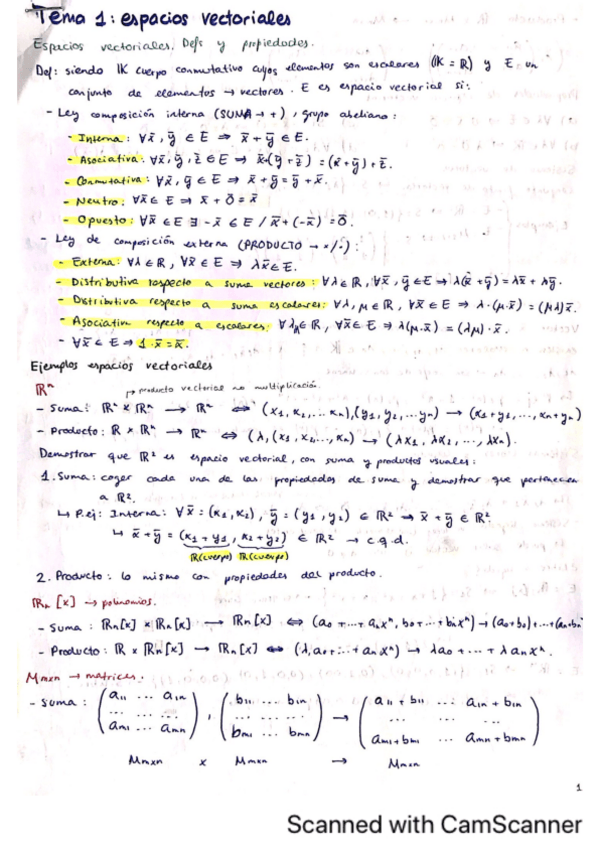 Tema 1: espacios vectoriales
Espacios vectoriales. Defs y propiedades.
Def: siendo IK cuerpo conmutativo cuyos elementos son escalares (IK = ℝ) y E un
conjunto de elementos → vectores. E es espacio vectorial si:
- Ley composición interna (SUMA → +), grupo abeliano:
- Interna: ∀x̄, ȳ ∈ E ⇒ x̄ + ȳ ∈ E.
- Asociativa: ∀x̄, ȳ, z̄ ∈ E ⇒ x̄+(ȳ + z̄) = (x̄ + ȳ) + z̄.
- Conmutativa: ∀x̄, ȳ ∈ E ⇒ x̄ + ȳ = ȳ + x̄.
- Neutro: ∀x̄ ∈ E ⇒ x̄ + 0̄ = x̄
- Opuesto: ∀x̄ ∈ E ∃ -x̄ ∈ E / x̄ + (-x̄) = 0̄.
- Ley de composición externa (PRODUCTO → ×/·):
- Externa: ∀λ ∈ ℝ, ∀x̄ ∈ E ⇒ λx̄ ∈ E.
- Distributiva respecto a suma vectores: ∀λ ∈ ℝ, ∀x̄, ȳ ∈ E ⇒ λ(x̄ + ȳ) = λx̄ + λȳ.
- Distributiva respecto a suma escalares: ∀λ, μ ∈ ℝ, ∀x̄ ∈ E ⇒ λ·(μ·x̄) = (μλ)x̄.
- Asociativa respecto a escalares: ∀λ,μ ∈ ℝ, ∀x̄ ∈ E ⇒ λ(μ·x̄) = (λμ)·x̄.
- ∀x̄ ∈ E ⇒ 1·x̄ = x̄.
Ejemplos espacios vectoriales
ℝⁿ
↱ producto vectorias no multiplicación.
- Suma: ℝⁿ × ℝⁿ → ℝⁿ ⇔ (x₁, x₂, ... xₙ),(y₁, y₂, ... yₙ) → (x₁+y₁, ..., xₙ+yₙ)
- Producto: ℝ × ℝⁿ → ℝⁿ ⇔ (λ, (x₁, x₂, ..., xₙ) → (λx₁, λx₂, ..., λxₙ).
Demostrar que ℝ² es espacio vectorial, con suma y productos usuales:
1. Suma: coger cada una de las propiedades de suma y demostrar que pertenecen
a ℝ².
↳ P.ej: Interna: ∀x̄ = (x₁, x₂), ȳ = (y₁, y₂) ∈ ℝ² → x̄ + ȳ ∈ ℝ².
↳ x̄ + ȳ = (x₁ + y₁, x₂ + y₂) ∈ ℝ² → c.q.d.
ℝ(cuerpo) ℝ(cuerpo)
2. Producto: lo mismo con propiedades del producto.
ℝₙ [x] → polinomios.
- Suma: ℝₙ[x] × ℝₙ[x] → ℝₙ[x] ⇔ (a₀ + ... + aₙxⁿ, b₀ + ... + bₙxⁿ) → (a₀+b₀) + ... + (aₙ+bₙ
- Producto: ℝ × ℝₙ[x] → ℝₙ[x] ⇔ (λ, a₀ + ... + aₙxⁿ) → λa₀ + ... + λaₙxⁿ.
Mmxn → matrices.
- Suma: (a₁₁ ... a₁ₙ) , (b₁₁ ... b₁ₙ) → (a₁₁ + b₁₁ ... a₁ₙ + b₁ₙ)
... ... ... ... ... ... ... ... ...
aₘ₁ ... aₘₙ bₘ₁ ... bₘₙ aₘ₁+bₘ₁ ... aₘₙ + bₘₙ
Mmxn x Mmxn → Mmxn
1
Scanned with CamScanner